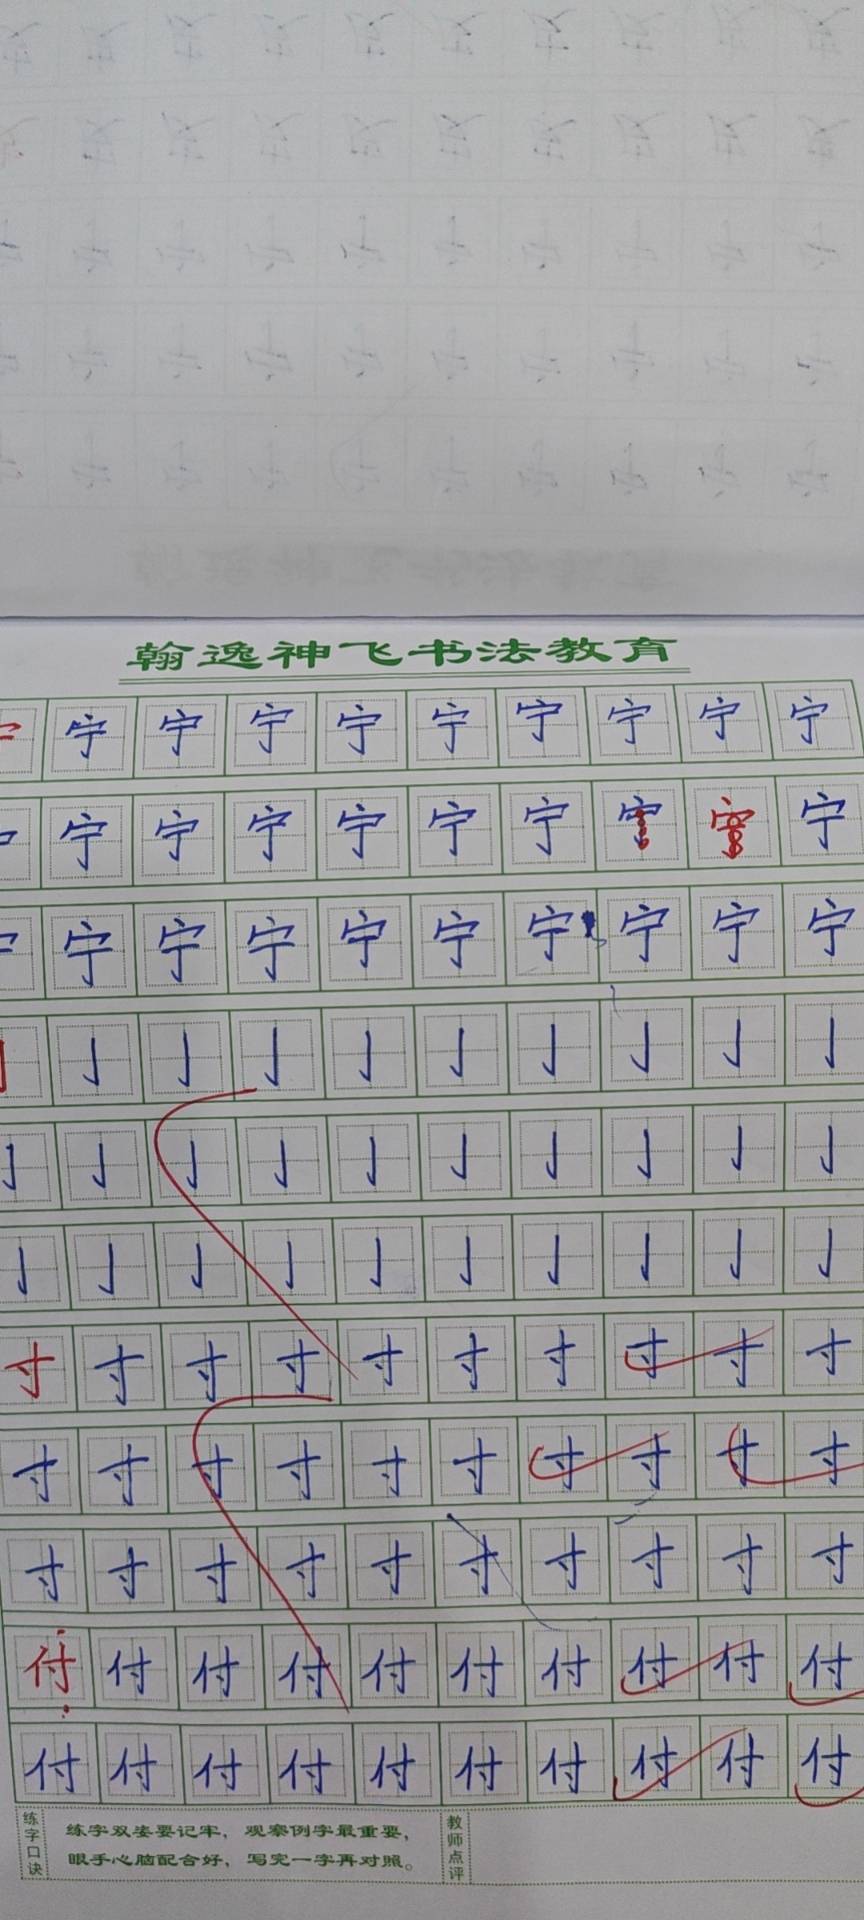 翰逸神飞书法教育
宁 宁 宁 宁 宁 宁 宁 宁 宁
宁 宁 宁 宁 宁 宁 宁 宁 宁
宁 宁 宁 宁 宁 宁 宁 宁 宁
亅 亅 亅 亅 亅 亅 亅 亅 亅
亅 亅 亅 亅 亅 亅 亅 亅 亅 亅
亅 亅 亅 亅 亅 亅 亅 亅 亅 亅
寸 寸 寸 寸 寸 寸 寸 寸 寸 寸
寸 寸 寸 寸 寸 寸 寸 寸 寸 寸
寸 寸 寸 寸 寸 寸 寸 寸 寸 寸
付 付 付 付 付 付 付 付 付 付
付 付 付 付 付 付 付 付 付 付
练字口诀
练字双姿要记牢，观察例字最重要，
眼手心脑配合好，写完一字再对照。
教师点评